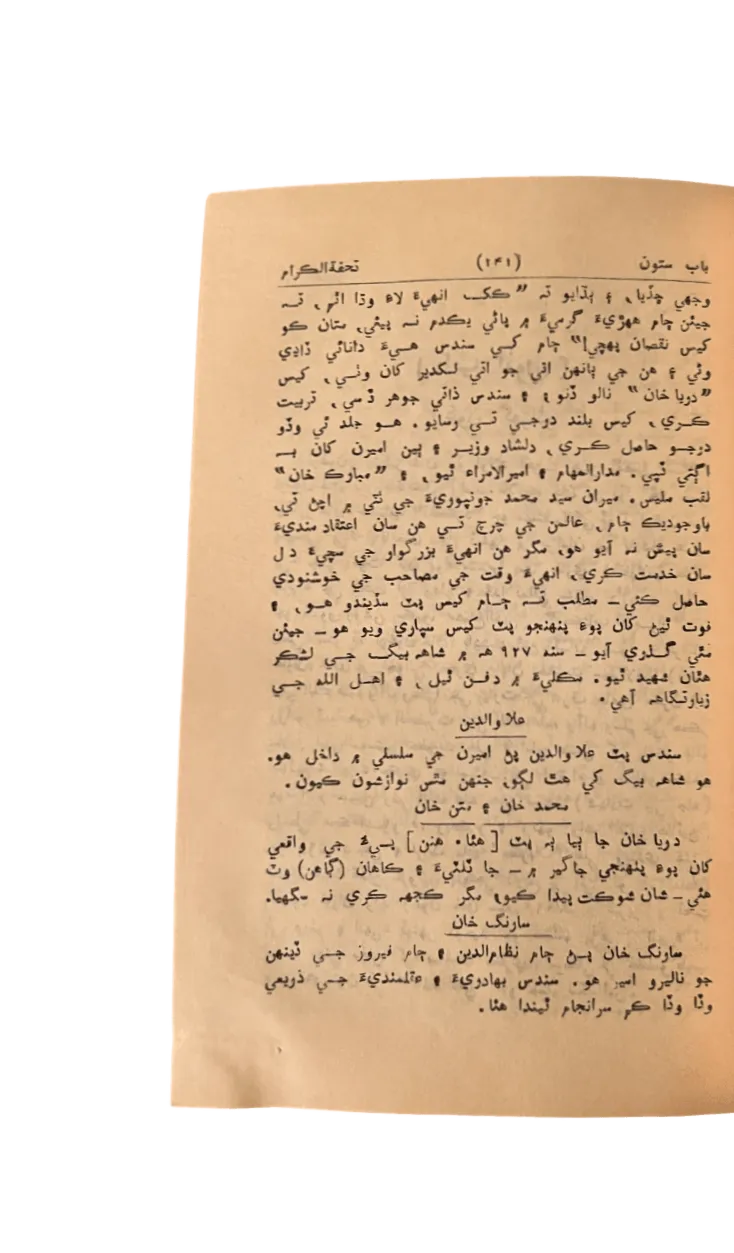 باب ستون (۱۴۱) تحفةالڪرام
وجهي ڇڏيا، ۽ ٻڌايو تہ ”ڪک انهيءَ لاءِ وڌا اٿم، تہ
جيئن ڄام ههڙيءَ گرميءَ ۾ پاڻي يڪدم نہ پيئي، متان ڪو
کيس نقصان پهچي!“ ڄام کي سندس هيءَ دانائي ڏاڍي
وڻي ۽ هن جي ٻانهن اتي جو اتي لکدير کان وٺي، کيس
”دريا خان“ نالو ڏنو ۽ سندس ذاتي جوهر ڏسي، تربيت
ڪري، کيس بلند درجي تي رسايو. هو جلد ئي وڏو
درجو حاصل ڪري، دلشاد وزير ۽ ٻين اميرن کان بہ
اڳتي ٽپي. مدارالمهام ۽ اميرالامراء ٿيو، ۽ ”مبارڪ خان“
لقب مليس. ميران سيد محمد جونپوريءَ جي ٺٽي ۾ اچڻ تي،
باوجوديڪ ڄام، عالمن جي چرچ تي هن سان اعتقاد منديءَ
سان پيش نہ آيو هو، مگر هن انهيءَ بزرگوار جي سچيءَ دل
سان خدمت ڪري، انهيءَ وقت جي مصاحب جي خوشنودي
حاصل ڪئي ــ مطلب تہ ڄام کيس پٽ سڏيندو هو، ۽
فوت ٿيڻ کان پوءِ پنهنجو پٽ کيس سپاري ويو هو ــ جيئن
مٿي گذري آيو ــ سنہ ۹۲۷ هہ ۾ شاهہ بيگ جي لشڪر
هٿان شهيد ٿيو. مڪليءَ ۾ دفن ٿيل، ۽ اهل الله جي
زيارتگاهہ آهي.
علاوالدين
سندس پٽ علاوالدين پڻ اميرن جي سلسلي ۾ داخل هو.
هو شاهہ بيگ کي هٿ لڳو، جنهن مٿس نوازشون ڪيون.
محمد خان ۽ مٺن خان
دريا خان جا ٻيا ٻہ پٽ [هئا. هنن] پيءُ جي واقعي
کان پوءِ پنهنجي جاگير ۾ ــ جا ٽلٽيءَ ۽ ڪاهان (گاهن) وٽ
هئي ــ شان شوڪت پيدا ڪيو، مگر ڪجهہ ڪري نہ سگهيا.
سارنگ خان
سارنگ خان پڻ ڄام نظام‌الدين ۽ ڄام فيروز جي ڏينهن
جو ناليرو امير هو. سندس بهادريءَ ۽ عقلمنديءَ جي ذريعي
وڏا وڏا ڪم سرانجام ٿيندا هئا.